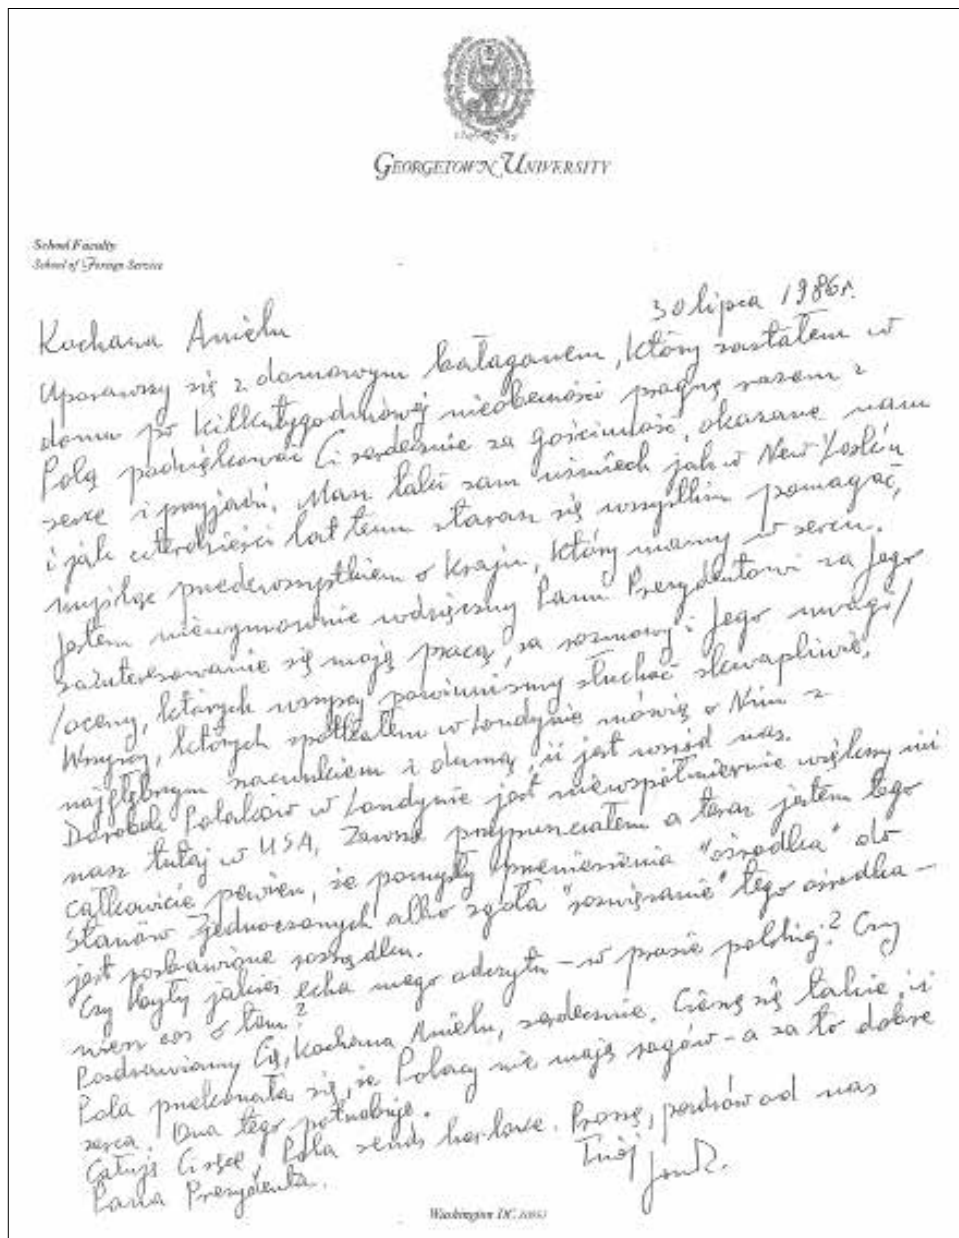 GEORGETOWN UNIVERSITY
School Faculty
School of Foreign Service
30 lipca 1986r.
Kochana Anielu
Uporawszy się z domowym bałaganem, który zastałem w
domu po kilkutygodniowej nieobecności pragnę razem z
Polą podziękować Ci serdecznie za gościnność, okazane nam
serce i przyjaźń. Masz taki sam uśmiech jak w New Yorku
i jak czterdzieści lat temu starasz się wszystkim pomagać,
myśląc przedewszystkiem o kraju, który mamy w sercu.
Jestem niewymownie wdzięczny Panu Prezydentowi za Jego
zainteresowanie się moją pracą, za rozmowy i Jego uwagi/
/oceny, których wszyscy powinniśmy słuchać skwapliwie.
Wszyscy, których spotkałem w Londynie mówią o Nim z
najgłębszym szacunkiem i dumą, iż jest wśród nas.
Dorobek Polaków w Londynie jest niewspółmiernie większy niż
nasz tutaj w USA. Zawsze przypuszczałem a teraz jestem tego
całkowicie pewien, że pomysły przeniesienia "ośrodka" do
Stanów Zjednoczonych albo zgoła "rozwiązanie" tego ośrodka –
jest pozbawione rozsądku.
Czy były jakieś echa mego odczytu – w prasie polskiej? Czy
wiesz coś o tem?
Pozdrawiamy Cię, Kochana Anielu, serdecznie. Cieszę się także, iż
Pola przekonała się, że Polacy nie mają rogów – a za to dobre
serca. Ona tego potrzebuje.
Całuję Ci ręce. Pola sends her love. Proszę, pozdrów od nas
Pana Prezydenta.
Twój
Jan K.
Washington DC 20057